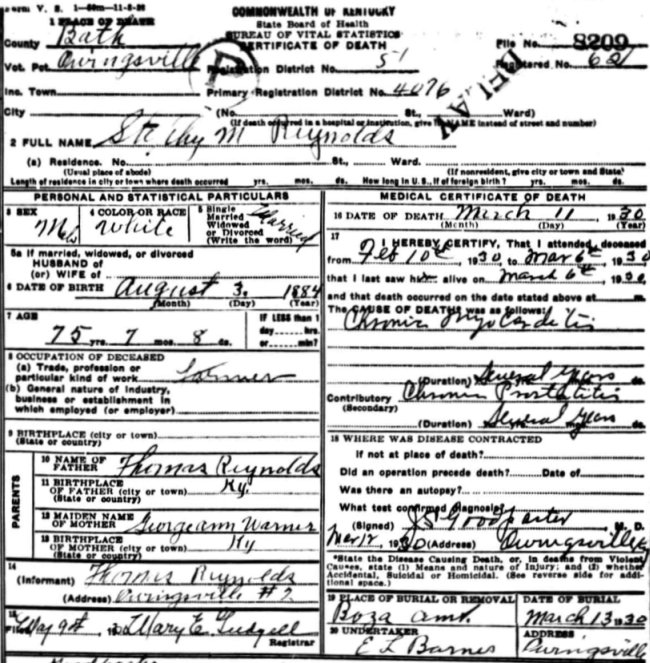 Form V. S. 1-50m-11-5-28
COMMONWEALTH OF KENTUCKY
State Board of Health
BUREAU OF VITAL STATISTICS
CERTIFICATE OF DEATH
DELAY
1 PLACE OF DEATH
County Bath
File No. 8209
Vot. Pct. Owingsville
Registration District No. 51
Registered No.
Inc. Town
Primary Registration District No. 4076
City (No. St., Ward)
(If death occurred in a hospital or institution, give its NAME instead of street and number)
2 FULL NAME M Reynolds
(a) Residence. No. St., Ward.
(Usual place of abode) (If nonresident, give city or town and State)
Length of residence in city or town where death occurred yrs. mos. ds. How long in U. S., if of foreign birth? yrs. mos. ds.
PERSONAL AND STATISTICAL PARTICULARS
3 SEX
4 COLOR OR RACE
White
5 Single
Married
Widowed
or Divorced
(Write the word)
Married
5a If married, widowed, or divorced
HUSBAND of
(or) WIFE of
6 DATE OF BIRTH August 3, 1884
(Month) (Day) (Year)
7 AGE
75 yrs. 7 mos. 8 ds.
IF LESS than 1
day hrs.
or min?
8 OCCUPATION OF DECEASED
(a) Trade, profession or
particular kind of work
(b) General nature of industry,
business or establishment in
which employed (or employer)
9 BIRTHPLACE (city or town)
(State or country)
PARENTS
10 NAME OF
FATHER Thomas Reynolds
11 BIRTHPLACE
OF FATHER (city or town) Ky.
(State or country)
12 MAIDEN NAME
OF MOTHER Georgeann Warner
13 BIRTHPLACE
OF MOTHER (city or town) Ky
(State or country)
14
(Informant) Thomas Reynolds
(Address) Owingsville # 2
15
Filed May 9th, 1930 Mary E. Gudgell
Registrar
MEDICAL CERTIFICATE OF DEATH
16 DATE OF DEATH March 11, 1930
(Month) (Day) (Year)
17
I HEREBY CERTIFY, That I attended deceased
from Feb 10th, 1930, to Mar 6th, 1930
that I last saw h alive on March 6th, 1930,
and that death occurred on the date stated above at m.
The CAUSE OF DEATH was as follows:
Chronic Myocarditis
(Duration) Several years mos. ds.
Contributory Chronic Prostatitis
(Secondary)
(Duration) Several years ds.
18 WHERE WAS DISEASE CONTRACTED
If not at place of death?
Did an operation precede death? Date of
Was there an autopsy?
What test confirmed diagnosis?
(Signed) J S Goodpaster M. D.
Mar 12, 1930 (Address) Owingsville, Ky
*State the Disease Causing Death, or, in deaths from Violent
Causes, state (1) Means and nature of Injury; and (2) whether
Accidental, Suicidal or Homicidal. (See reverse side for addi-
tional space.)
19 PLACE OF BURIAL OR REMOVAL
DATE OF BURIAL
March 13 1930
20 UNDERTAKER
E L Barnes
ADDRESS
Owingsville